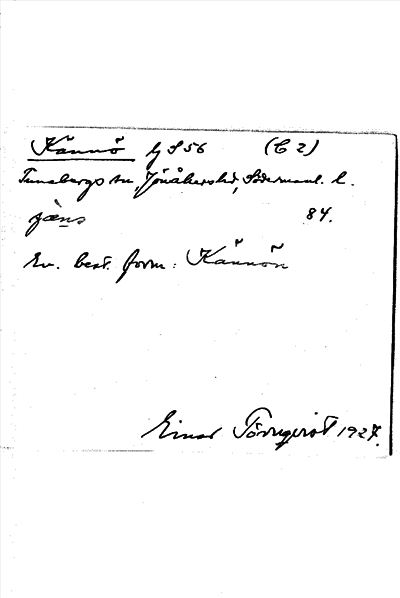 Kännö lg S 56 (C 2)
Tunabergs sn, Jönåkers hd, Södermanl. l.
jæ̀ns 84.
Ev. best. form: Kännön
Einar Törnqvist 1927.